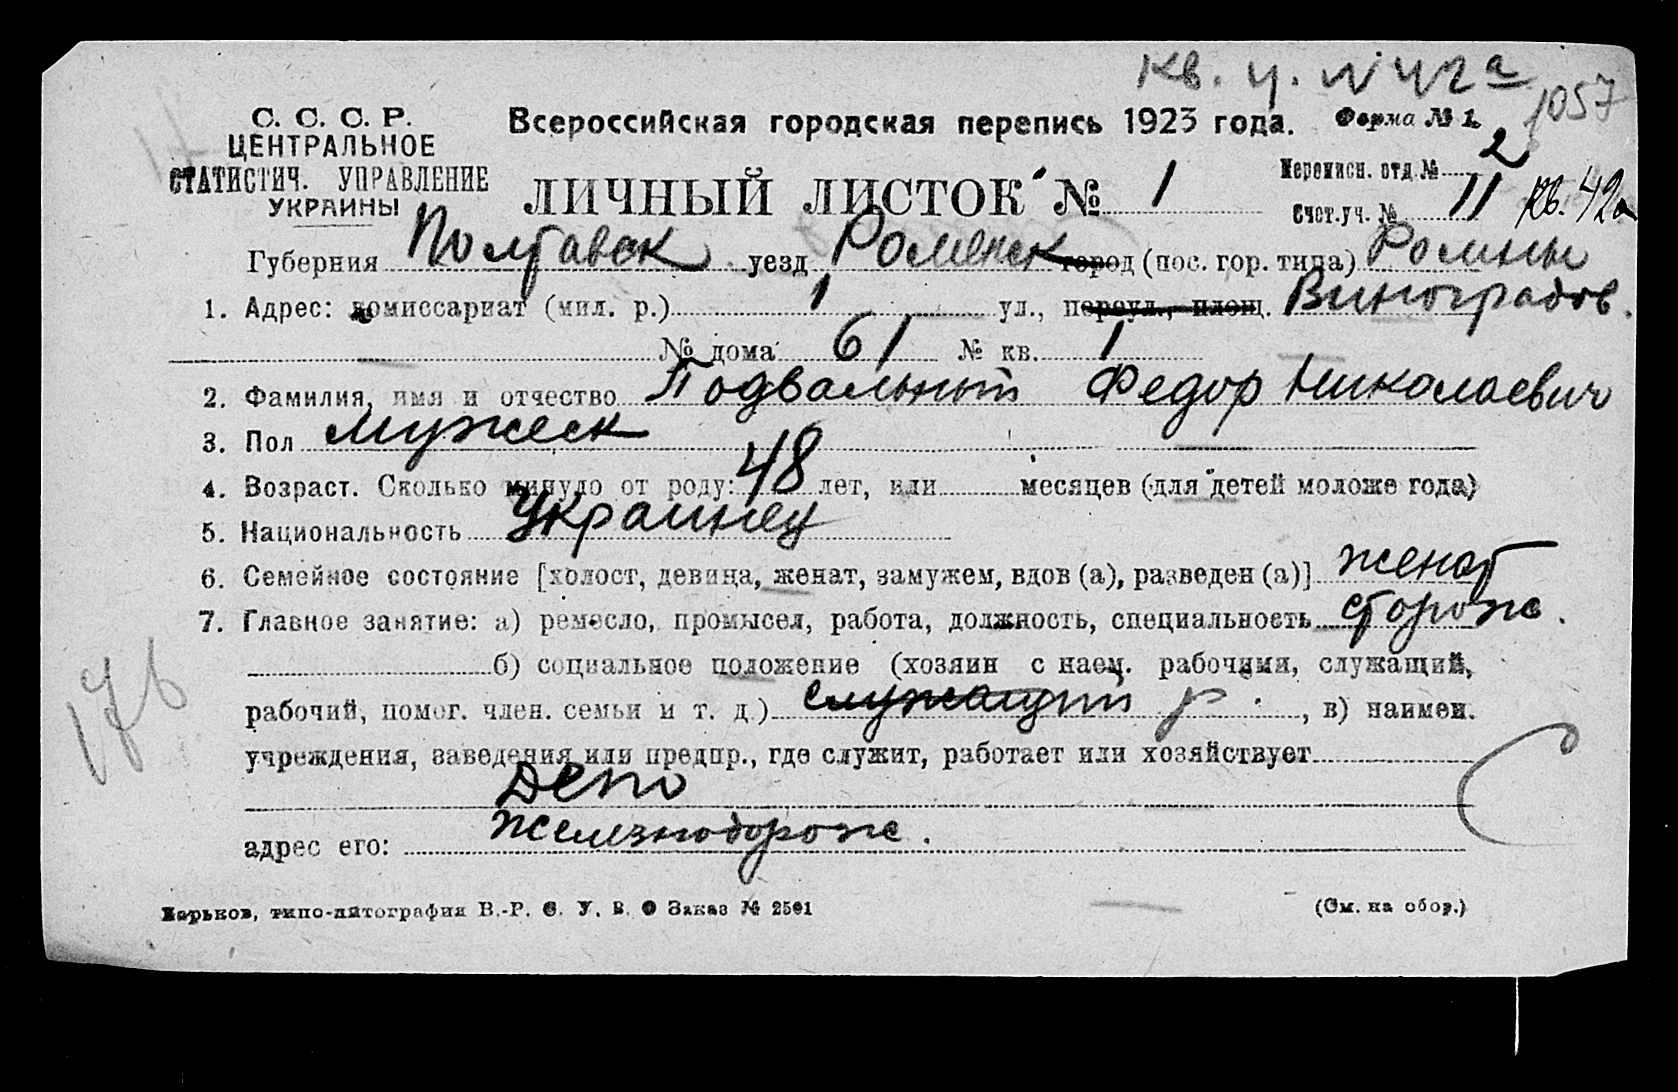 Кв. у. № 42а
1057
С. С. С. Р.
ЦЕНТРАЛЬНОЕ
СТАТИСТИЧ. УПРАВЛЕНИЕ
УКРАИНЫ
Всероссийская городская перепись 1923 года. Форма № 1.
Переписн. отд. № 2
ЛИЧНЫЙ ЛИСТОК № 1
Счет. уч. № 11 Кв. 42а
Губерния Полтавск уезд Роменск город (пос. гор. типа) Ромны
1. Адрес: комиссариат (мил. р.) 1 ул., переул., площ. Виноградов.
№ дома 61 № кв. 1
2. Фамилия, имя и отчество Подвальный Федор Николаевич
3. Пол мужеск
4. Возраст. Сколько минуло от роду: 48 лет, или месяцев (для детей моложе года)
5. Национальность Украинец
6. Семейное состояние [холост, девица, женат, замужем, вдов (а), разведен (а)] женат
7. Главное занятие: а) ремесло, промысел, работа, должность, специальность сторож.
б) социальное положение (хозяин с наем. рабочими, служащий,
рабочий, помог. член. семьи и т. д.) служащий р., в) наимен.
учреждения, заведения или предпр., где служит, работает или хозяйствует
Депо
адрес его: Железнодорож.
176
Харьков, типо-литография В.-Р. С. У. В. О Заказ № 2501
(См. на обор.)